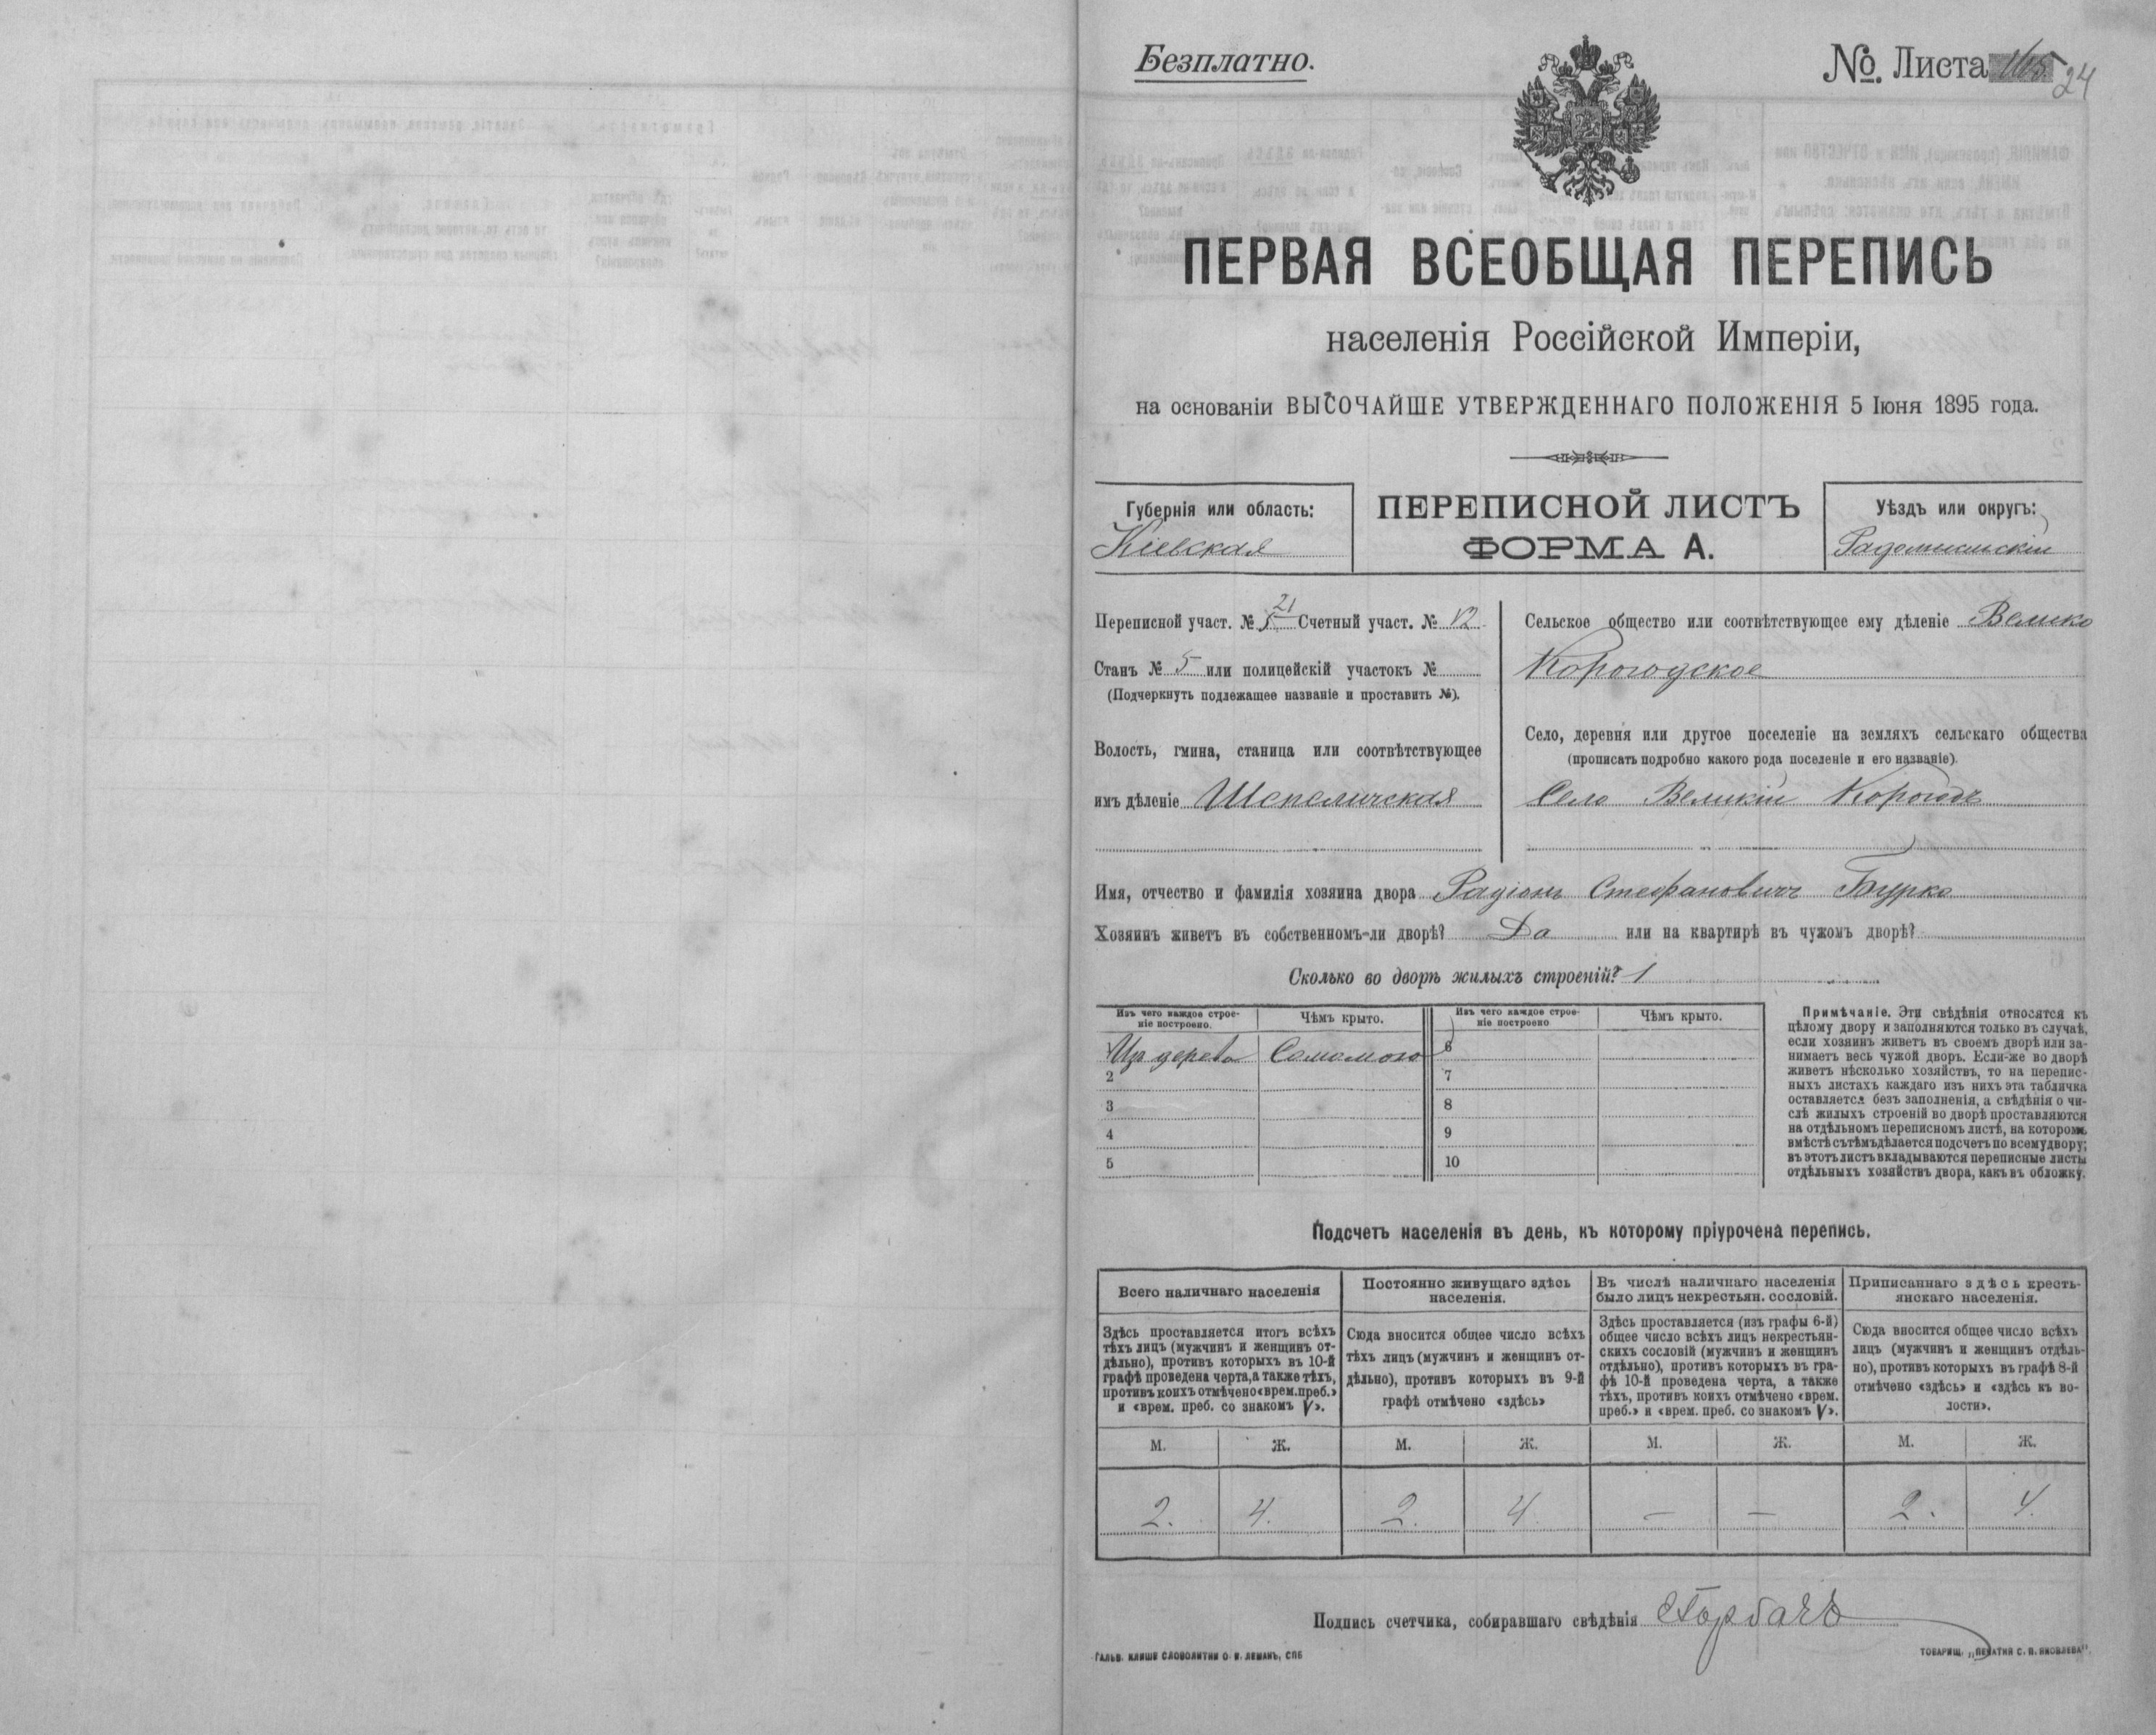 Безплатно.
№ Листа 24
ПЕРВАЯ ВСЕОБЩАЯ ПЕРЕПИСЬ
населенія Россійской Имперіи,
на основаніи ВЫСОЧАЙШЕ УТВЕРЖДЕННАГО ПОЛОЖЕНІЯ 5 Іюня 1895 года.
Губернія или область:
Кіевская
ПЕРЕПИСНОЙ ЛИСТЪ
ФОРМА А.
Уѣздъ или округъ:
Радомысльскій
Переписной участ. № 21 Счетный участ. № 12
Станъ № 5 или полицейскій участокъ №
(Подчеркнуть подлежащее названіе и проставить №).
Волость, гмина, станица или соотвѣтствующее
имъ дѣленіе Шепеличская
Сельское общество или соотвѣтствующее ему дѣленіе Велико
Корогодское
Село, деревня или другое поселеніе на земляхъ сельскаго общества
(прописать подробно какого рода поселеніе и его названіе).
Село Великій Корогодъ
Имя, отчество и фамилія хозяина двора Радіонъ Стефановичъ Бурко
Хозяинъ живетъ въ собственномъ-ли дворѣ? Да или на квартирѣ въ чужомъ дворѣ?
Сколько во дворѣ жилыхъ строеній? 1
Изъ чего каждое строе-
ніе построено.
Чѣмъ крыто.
Изъ чего каждое строе-
ніе построено
Чѣмъ крыто.
Изъ дерева Соломою 6
2 7
3 8
4 9
5 10
Примѣчаніе. Эти свѣдѣнія относятся къ
цѣлому двору и заполняются только въ случаѣ,
если хозяинъ живетъ въ своемъ дворѣ или за-
нимаетъ весь чужой дворъ. Если-же во дворѣ
живетъ нѣсколько хозяйствъ, то на перепис-
ныхъ листахъ каждаго изъ нихъ эта табличка
оставляется безъ заполненія, а свѣдѣнія о чи-
слѣ жилыхъ строеній во дворѣ проставляются
на отдѣльномъ переписномъ листѣ, на которомъ
вмѣстѣ съ тѣмъ дѣлается подсчетъ по всему двору;
въ этотъ листъ вкладываются переписные листы
отдѣльныхъ хозяйствъ двора, какъ въ обложку.
Подсчетъ населенія въ день, къ которому пріурочена перепись.
Всего наличнаго населенія
Здѣсь проставляется итогъ всѣхъ
тѣхъ лицъ (мужчинъ и женщинъ от-
дѣльно), противъ которыхъ въ 10-й
графѣ проведена черта, а также тѣхъ,
противъ коихъ отмѣчено «врем. преб.»
и «врем. преб. со знакомъ V».
Постоянно живущаго здѣсь
населенія.
Сюда вносится общее число всѣхъ
тѣхъ лицъ (мужчинъ и женщинъ от-
дѣльно), противъ которыхъ въ 9-й
графѣ отмѣчено «здѣсь»
Въ числѣ наличнаго населенія
было лицъ некрестьян. сословій.
Здѣсь проставляется (изъ графы 6-й)
общее число всѣхъ лицъ некрестьян-
скихъ сословій (мужчинъ и женщинъ
отдѣльно), противъ которыхъ въ гра-
фѣ 10-й проведена черта, а также
тѣхъ, противъ коихъ отмѣчено «врем.
преб.» и «врем. преб. со знакомъ V».
Приписаннаго здѣсь кресть-
янскаго населенія.
Сюда вносится общее число всѣхъ
лицъ (мужчинъ и женщинъ отдѣль-
но), противъ которыхъ въ графѣ 8-й
отмѣчено «здѣсь» и «здѣсь къ во-
лости».
М. Ж. М. Ж. М. Ж. М. Ж.
2. 4. 2. 4 — — 2. 4.
Подпись счетчика, собиравшаго свѣдѣнія Горбачъ
ГАЛЬВ. КЛИШЕ СЛОВОЛИТНИ О. И. ЛЕМАНЪ, СПБ
ТОВАРИЩ. „ПЕЧАТНЯ С. П. ЯКОВЛЕВА“.